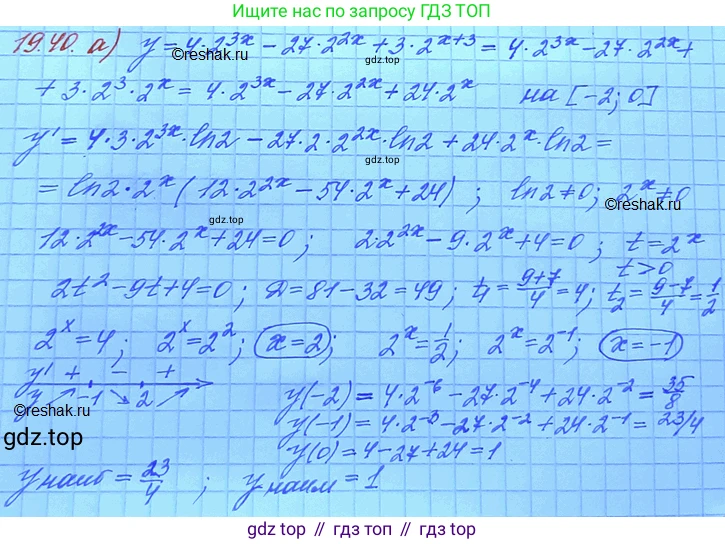 Ищите нас по запросу ГДЗ ТОП
19.40. а) y = 4·2^{3x} − 27·2^{2x} + 3·2^{x+3} = 4·2^{3x} − 27·2^{2x} +
©reshak.ru
gdz.top
+ 3·2^3·2^x = 4·2^{3x} − 27·2^{2x} + 24·2^x на [−2; 0]
y' = 4·3·2^{3x}·ln2 − 27·2·2^{2x}·ln2 + 24·2^x·ln2 =
gdz.top
= ln2·2^x (12·2^{2x} − 54·2^x + 24) ; ln2≠0; 2^x≠0
©reshak.ru
gdz.top
12·2^{2x} − 54·2^x + 24 = 0 ; 2·2^{2x} − 9·2^x + 4 = 0 ; t = 2^x
t > 0
2t^2 − 9t + 4 = 0 ; Д = 81 − 32 = 49 ; t_1 = \frac{9+7}{4} = 4 ; t_2 = \frac{9−7}{4} = \frac{1}{2}
2^x = 4 ; 2^x = 2^2 ; x = 2 ; 2^x = \frac{1}{2} ; 2^x = 2^{−1} ; x = −1
y' + − +
y −1 2
©reshak.ru
gdz.top
y(−2) = 4·2^{−6} − 27·2^{−4} + 24·2^{−2} = \frac{35}{8}
y(−1) = 4·2^{−3} − 27·2^{−2} + 24·2^{−1} = 23/4
y(0) = 4 − 27 + 24 = 1
y наиб = \frac{23}{4} ; y наим = 1
gdz.top // гдз топ // gdz.top